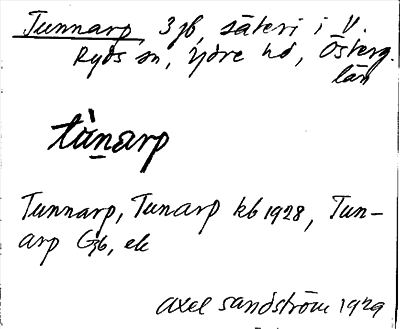 Tunnarp, 3 gb, säteri i V.
Ryds sn, Ydre hd, Österg.
län
tùnarp
Tunnarp, Tunarp kb 1928, Tun-
arp Gb, ek
Axel Sandström 1929